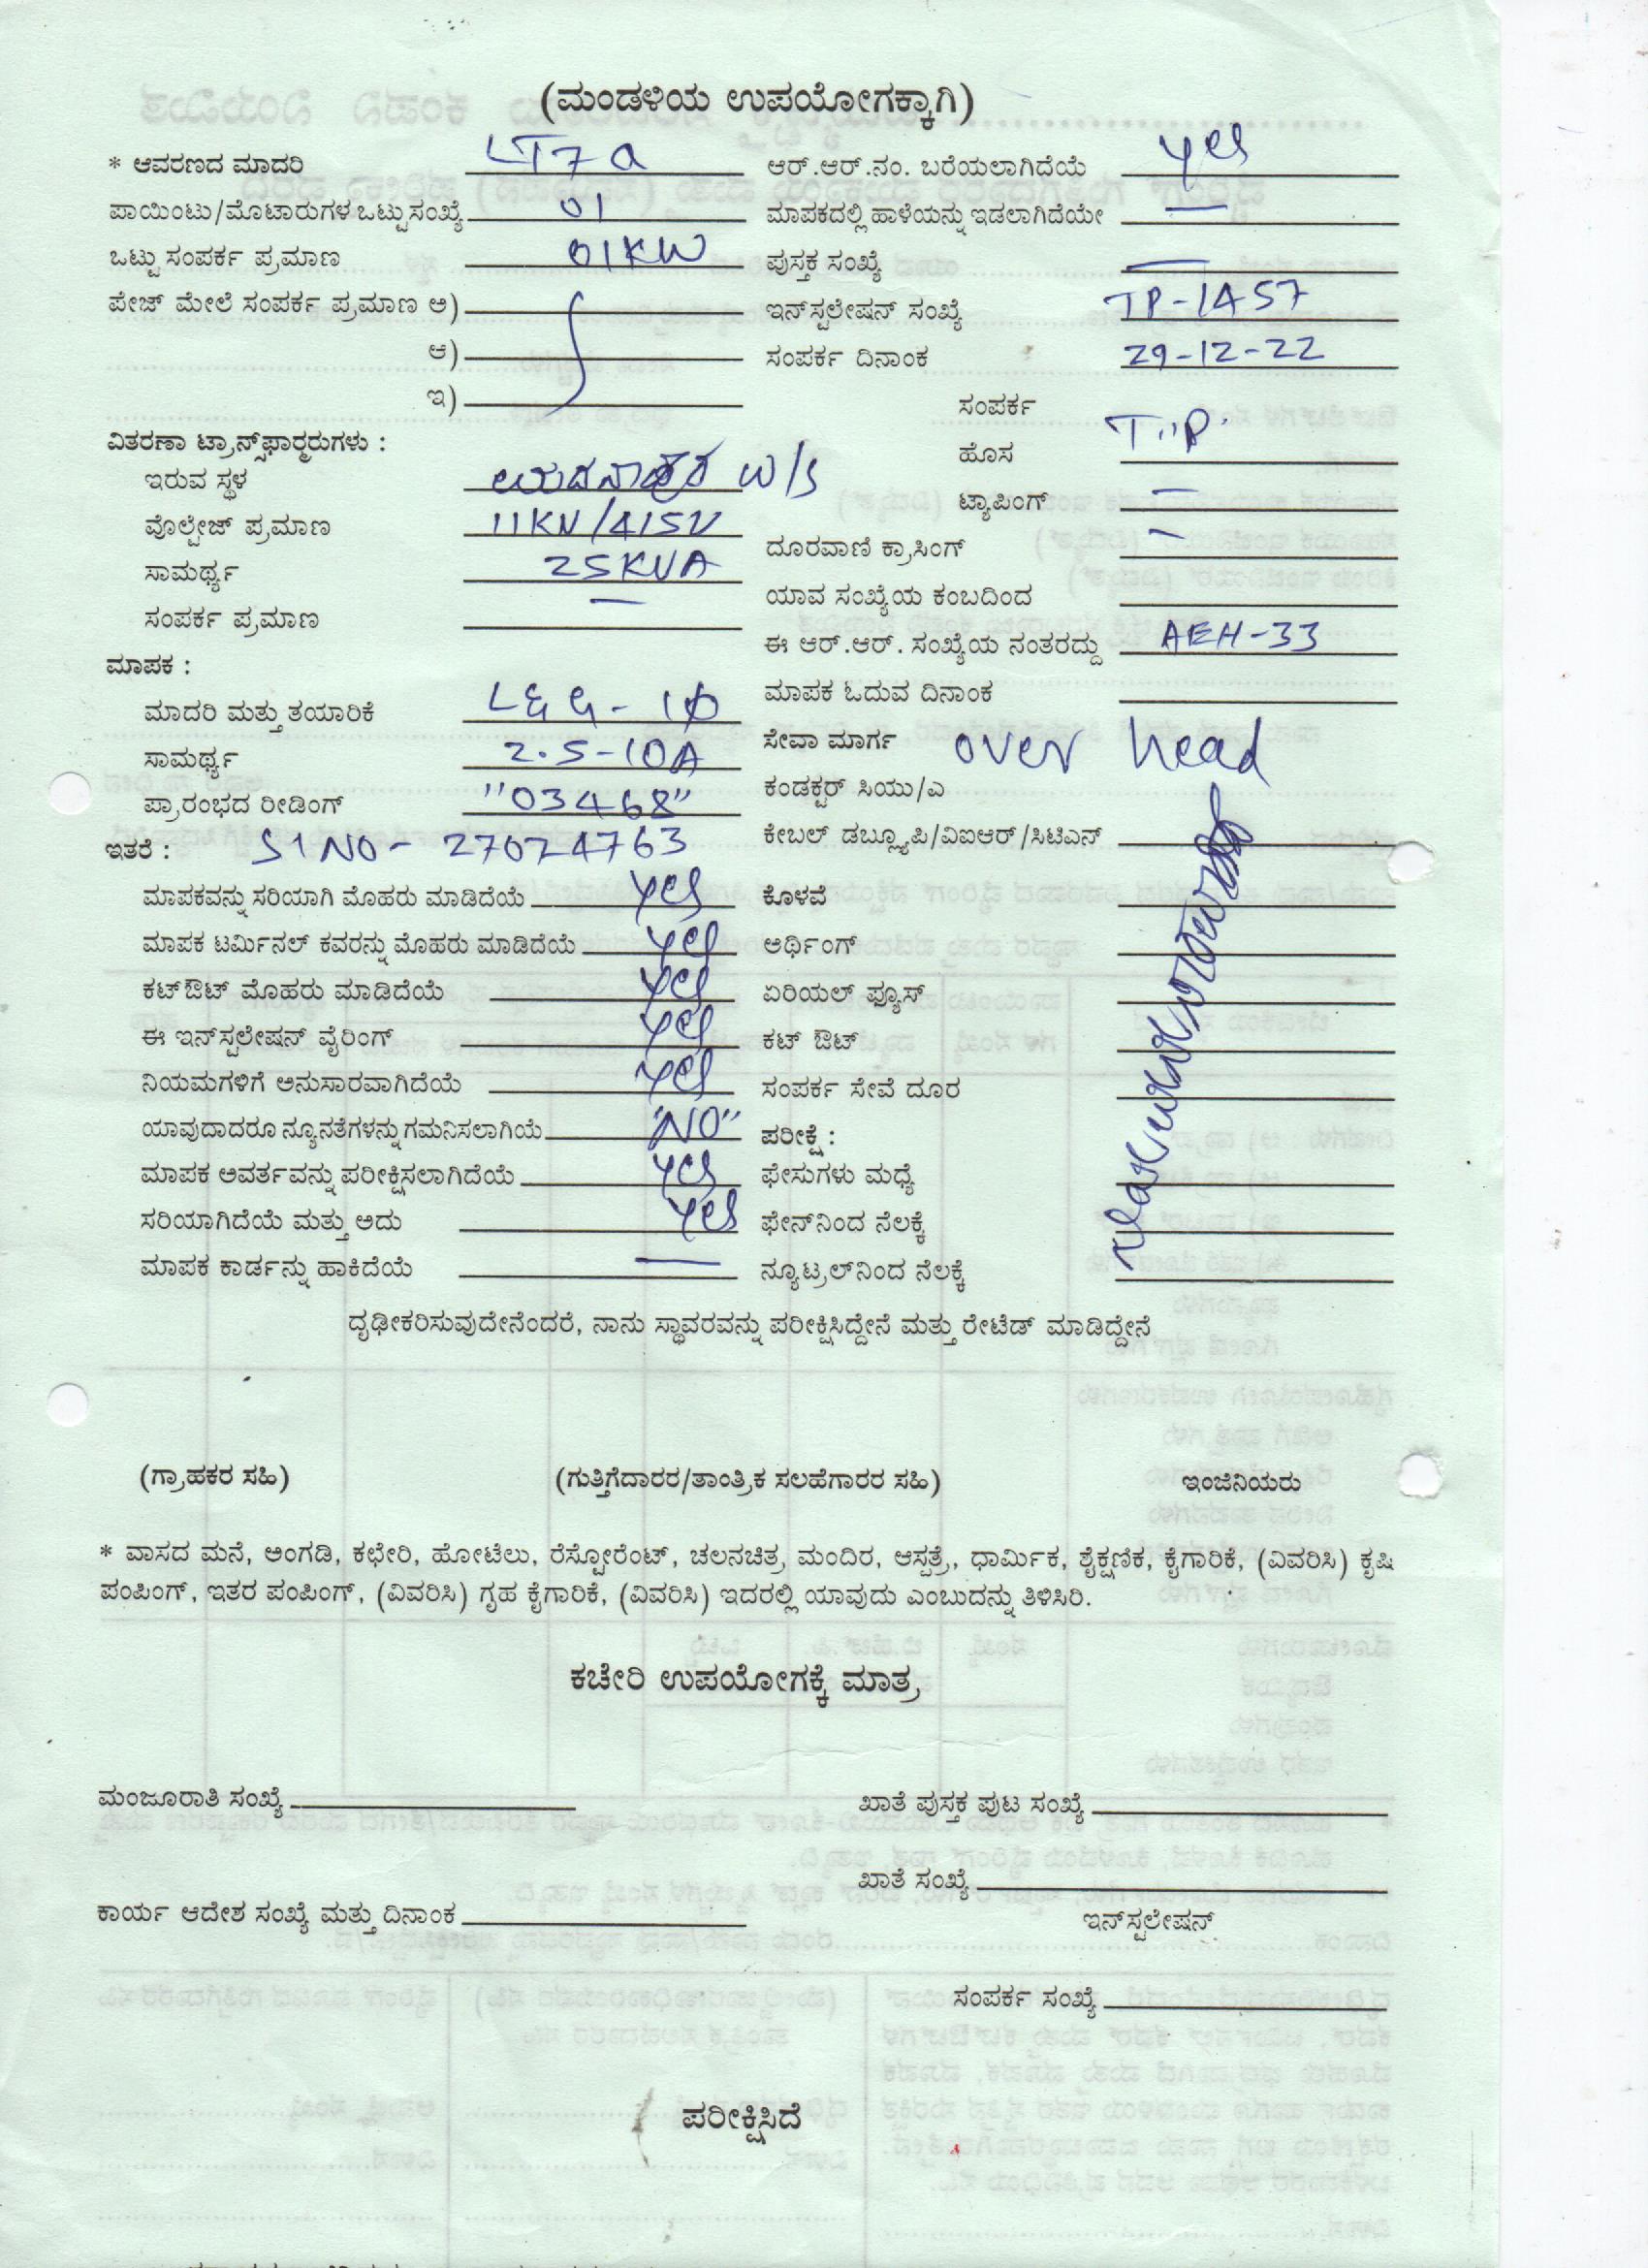 (ಮಂಡಳಿಯ ಉಪಯೋಗಕ್ಕಾಗಿ)
* ಆವರಣದ ಮಾದರಿ LT7a
ಪಾಯಿಂಟು/ಮೊಟಾರುಗಳ ಒಟ್ಟು ಸಂಖ್ಯೆ 01
ಒಟ್ಟು ಸಂಪರ್ಕ ಪ್ರಮಾಣ 01KW
ಪೇಜ್ ಮೇಲೆ ಸಂಪರ್ಕ ಪ್ರಮಾಣ ಅ)
ಆ)
ಇ)
ವಿತರಣಾ ಟ್ರಾನ್ಸ್‌ಫಾರ್‍ಮರುಗಳು :
ಇರುವ ಸ್ಥಳ W/S
ವೊಲ್ಟೇಜ್ ಪ್ರಮಾಣ 11KV/415V
ಸಾಮರ್ಥ್ಯ 25KVA
ಸಂಪರ್ಕ ಪ್ರಮಾಣ —
ಮಾಪಕ :
ಮಾದರಿ ಮತ್ತು ತಯಾರಿಕೆ L&G - 1φ
ಸಾಮರ್ಥ್ಯ 2.5-10A
ಪ್ರಾರಂಭದ ರೀಡಿಂಗ್ "03468"
ಇತರೆ : S1 NO - 27024763
ಮಾಪಕವನ್ನು ಸರಿಯಾಗಿ ಮೊಹರು ಮಾಡಿದೆಯೆ yes
ಮಾಪಕ ಟರ್ಮಿನಲ್ ಕವರನ್ನು ಮೊಹರು ಮಾಡಿದೆಯೆ yes
ಕಟ್‌ಔಟ್ ಮೊಹರು ಮಾಡಿದೆಯೆ yes
ಈ ಇನ್‌ಸ್ಟಲೇಷನ್ ವೈರಿಂಗ್ yes
ನಿಯಮಗಳಿಗೆ ಅನುಸಾರವಾಗಿದೆಯೆ yes
ಯಾವುದಾದರೂ ನ್ಯೂನತೆಗಳನ್ನು ಗಮನಿಸಲಾಗಿಯೆ "NO"
ಮಾಪಕ ಅವರ್ತವನ್ನು ಪರೀಕ್ಷಿಸಲಾಗಿದೆಯೆ yes
ಸರಿಯಾಗಿದೆಯೆ ಮತ್ತು ಅದು yes
ಮಾಪಕ ಕಾರ್ಡನ್ನು ಹಾಕಿದೆಯೆ —
ಆರ್.ಆರ್.ನಂ. ಬರೆಯಲಾಗಿದೆಯೆ yes
ಮಾಪಕದಲ್ಲಿ ಹಾಳೆಯನ್ನು ಇಡಲಾಗಿದೆಯೇ —
ಪುಸ್ತಕ ಸಂಖ್ಯೆ —
ಇನ್‌ಸ್ಟಲೇಷನ್ ಸಂಖ್ಯೆ TP-1457
ಸಂಪರ್ಕ ದಿನಾಂಕ 29-12-22
ಸಂಪರ್ಕ
ಹೊಸ T"P.
ಟ್ಯಾಪಿಂಗ್ —
ದೂರವಾಣಿ ಕ್ರಾಸಿಂಗ್ —
ಯಾವ ಸಂಖ್ಯೆಯ ಕಂಬದಿಂದ
ಈ ಆರ್.ಆರ್. ಸಂಖ್ಯೆಯ ನಂತರದ್ದು AEH-33
ಮಾಪಕ ಓದುವ ದಿನಾಂಕ
ಸೇವಾ ಮಾರ್ಗ over head
ಕಂಡಕ್ಟರ್ ಸಿಯು/ಎ
ಕೇಬಲ್ ಡಬ್ಲ್ಯೂಪಿ/ವಿಐಆರ್/ಸಿಟಿಎಸ್
ಕೊಳವೆ
ಅರ್ಥಿಂಗ್
ಏರಿಯಲ್ ಫ್ಯೂಸ್
ಕಟ್ ಔಟ್
ಸಂಪರ್ಕ ಸೇವೆ ದೂರ
ಪರೀಕ್ಷೆ :
ಫೇಸುಗಳು ಮಧ್ಯೆ
ಫೇಸ್‌ನಿಂದ ನೆಲಕ್ಕೆ
ನ್ಯೂಟ್ರಲ್‌ನಿಂದ ನೆಲಕ್ಕೆ
ದೃಢೀಕರಿಸುವುದೇನೆಂದರೆ, ನಾನು ಸ್ಥಾವರವನ್ನು ಪರೀಕ್ಷಿಸಿದ್ದೇನೆ ಮತ್ತು ರೇಟೆಡ್ ಮಾಡಿದ್ದೇನೆ
(ಗ್ರಾಹಕರ ಸಹಿ) (ಗುತ್ತಿಗೆದಾರರ/ತಾಂತ್ರಿಕ ಸಲಹೆಗಾರರ ಸಹಿ) ಇಂಜಿನಿಯರು
* ವಾಸದ ಮನೆ, ಅಂಗಡಿ, ಕಛೇರಿ, ಹೋಟೆಲು, ರೆಸ್ಟೋರೆಂಟ್, ಚಲನಚಿತ್ರ ಮಂದಿರ, ಆಸ್ಪತ್ರೆ, ಧಾರ್ಮಿಕ, ಶೈಕ್ಷಣಿಕ, ಕೈಗಾರಿಕೆ, (ವಿವರಿಸಿ) ಕೃಷಿ
ಪಂಪಿಂಗ್, ಇತರ ಪಂಪಿಂಗ್, (ವಿವರಿಸಿ) ಗೃಹ ಕೈಗಾರಿಕೆ, (ವಿವರಿಸಿ) ಇದರಲ್ಲಿ ಯಾವುದು ಎಂಬುದನ್ನು ತಿಳಿಸಿರಿ.
ಕಚೇರಿ ಉಪಯೋಗಕ್ಕೆ ಮಾತ್ರ
ಮಂಜೂರಾತಿ ಸಂಖ್ಯೆ ಖಾತೆ ಪುಸ್ತಕ ಪುಟ ಸಂಖ್ಯೆ
ಖಾತೆ ಸಂಖ್ಯೆ
ಕಾರ್ಯ ಆದೇಶ ಸಂಖ್ಯೆ ಮತ್ತು ದಿನಾಂಕ ಇನ್‌ಸ್ಟಲೇಷನ್
ಸಂಪರ್ಕ ಸಂಖ್ಯೆ
ಪರೀಕ್ಷಿಸಿದೆ